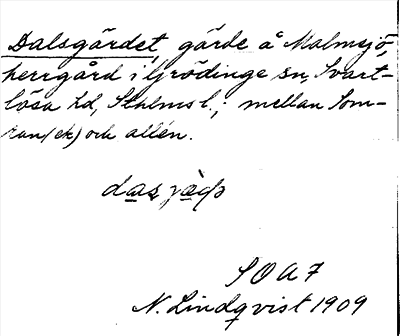 Dalsgärdet, gärde å Malmsjö,
herrgård i Grödinge sn, Svart-
lösa hd, Sthlms l.; mellan Som-
ran (ek) och allén.
SOA7
N. Lindqvist 1909